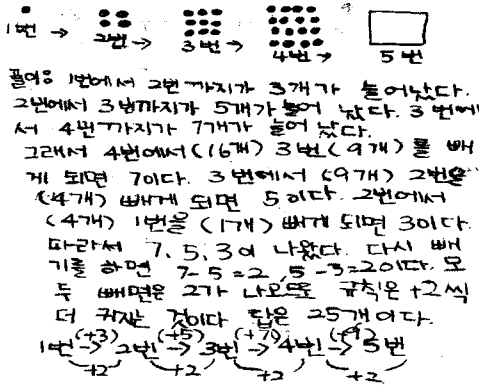 1번 → 2번 → 3번 → 4번 → 5번
풀이: 1번에서 2번까지가 3개가 늘어났다.
2번에서 3번까지가 5개가 늘어 났다. 3번에
서 4번까지가 7개가 늘어 났다.
그래서 4번에서(16개) 3번(9개)를 빼
게 되면 7이다. 3번에서(9개) 2번을
(4개) 빼게 되면 5이다. 2번에서
(4개) 1번을 (1개) 빼게 되면 3이다.
따라서 7, 5, 3이 나왔다. 다시 빼
기를 하면 7-5=2, 5-3=2이다. 모
두 빼면은 2가 나오므로 규칙은 +2씩
더 커지는 것이다 답은 25개이다.
(+3) (+5) (+7) (+9)
1번 → 2번 → 3번 → 4번 → 5번
+2 +2 +2 +2